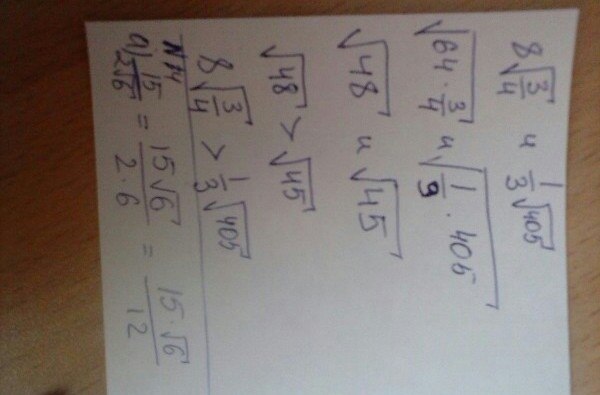 8√(3/4) и 1/3√405
√(64 · 3/4) и √(1/9 · 405)
√48 и √45
√48 > √45
8√(3/4) > 1/3√405
N4
а) 15/2√6 = 15√6/2·6 = 15·√6/12